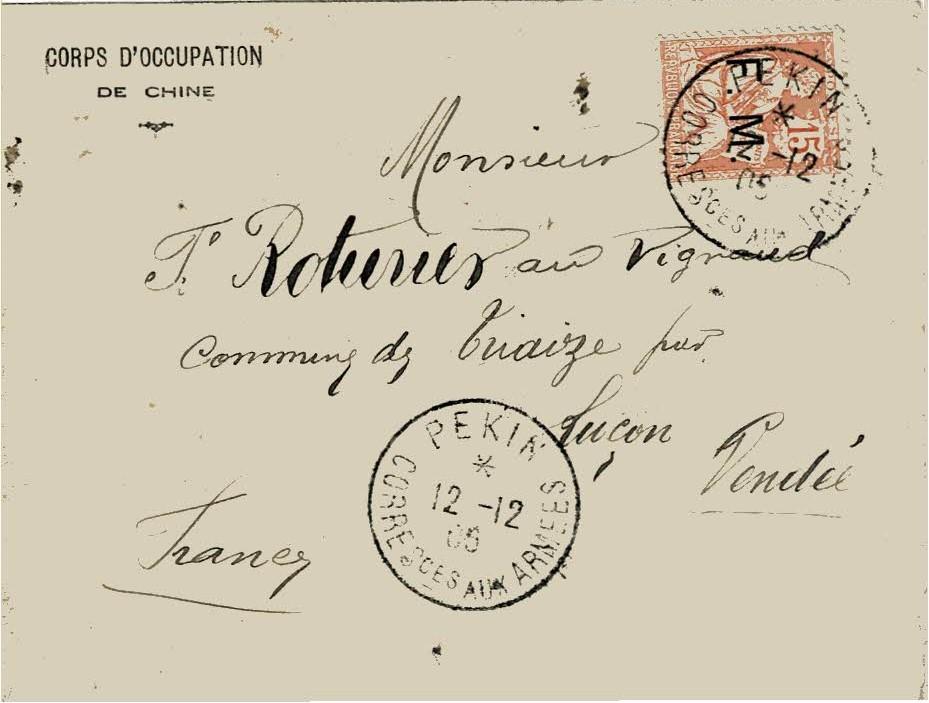 CORPS D'OCCUPATION
DE CHINE
F. M.
15
PEKIN
*
-12
05
CORRESCES AUX ARMEES
Monsieur
au Vignaud
Commune de Triaize par
Luçon
Vendée
France
PEKIN
*
12 -12
05
CORRESCES AUX ARMEES